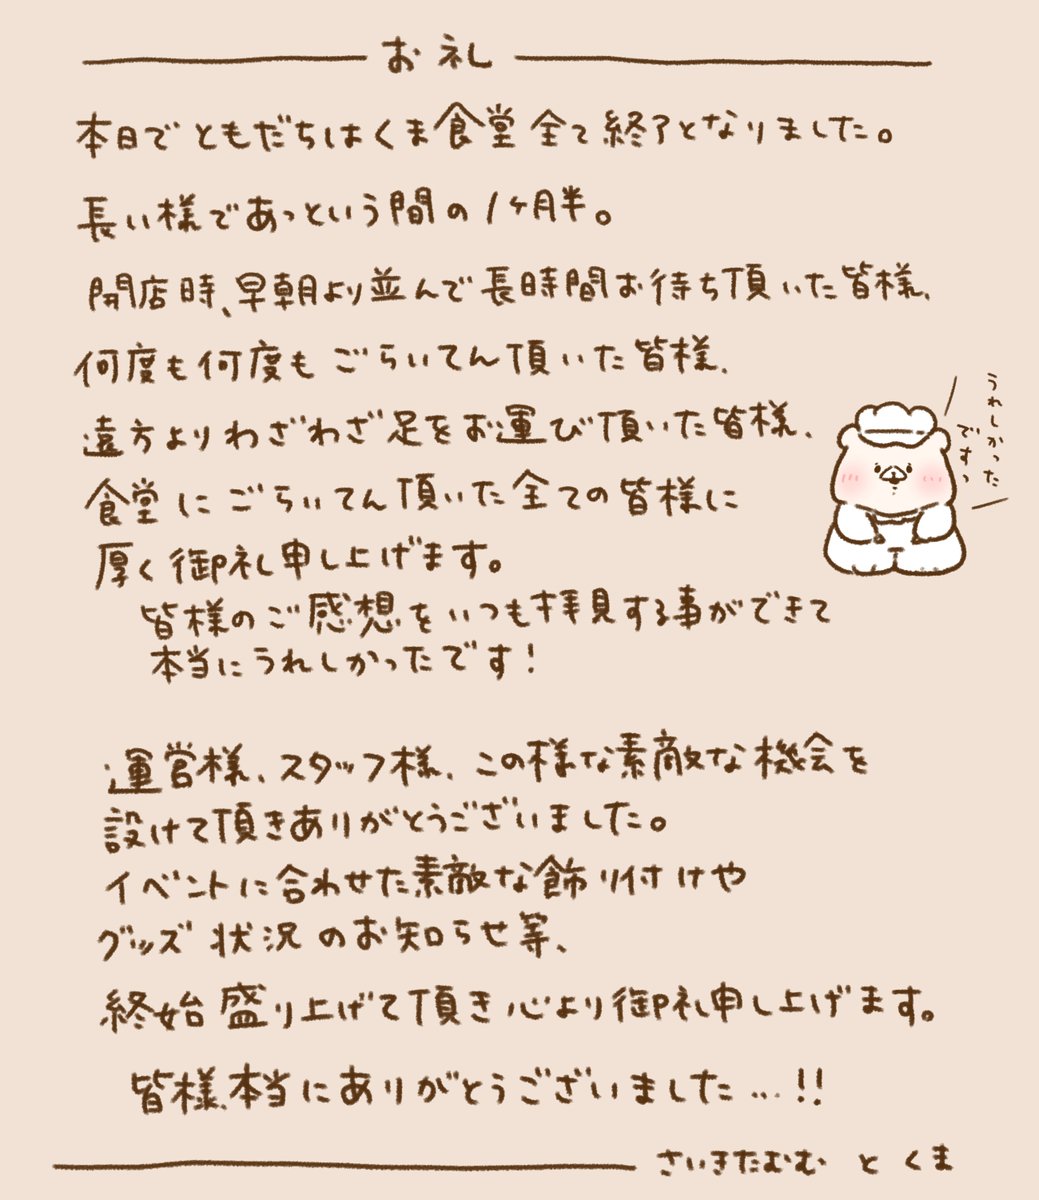 お礼
本日でともだちはくま食堂全て終了となりました。
長い様であっという間の1ヶ月半。
開店時、早朝より並んで長時間お待ち頂いた皆様、
何度も何度もごらいてん頂いた皆様、
遠方よりわざわざ足をお運び頂いた皆様、
食堂にごらいてん頂いた全ての皆様に
厚く御礼申し上げます。
皆様のご感想をいつも拝見する事ができて
本当にうれしかったです!
うれしかった
ですっ
運営様、スタッフ様、この様な素敵な機会を
設けて頂きありがとうございました。
イベントに合わせた素敵な飾り付けや
グッズ状況のお知らせ等、
終始盛り上げて頂き心より御礼申し上げます。
皆様、本当にありがとうございました…!!
さいきたむむ と くま